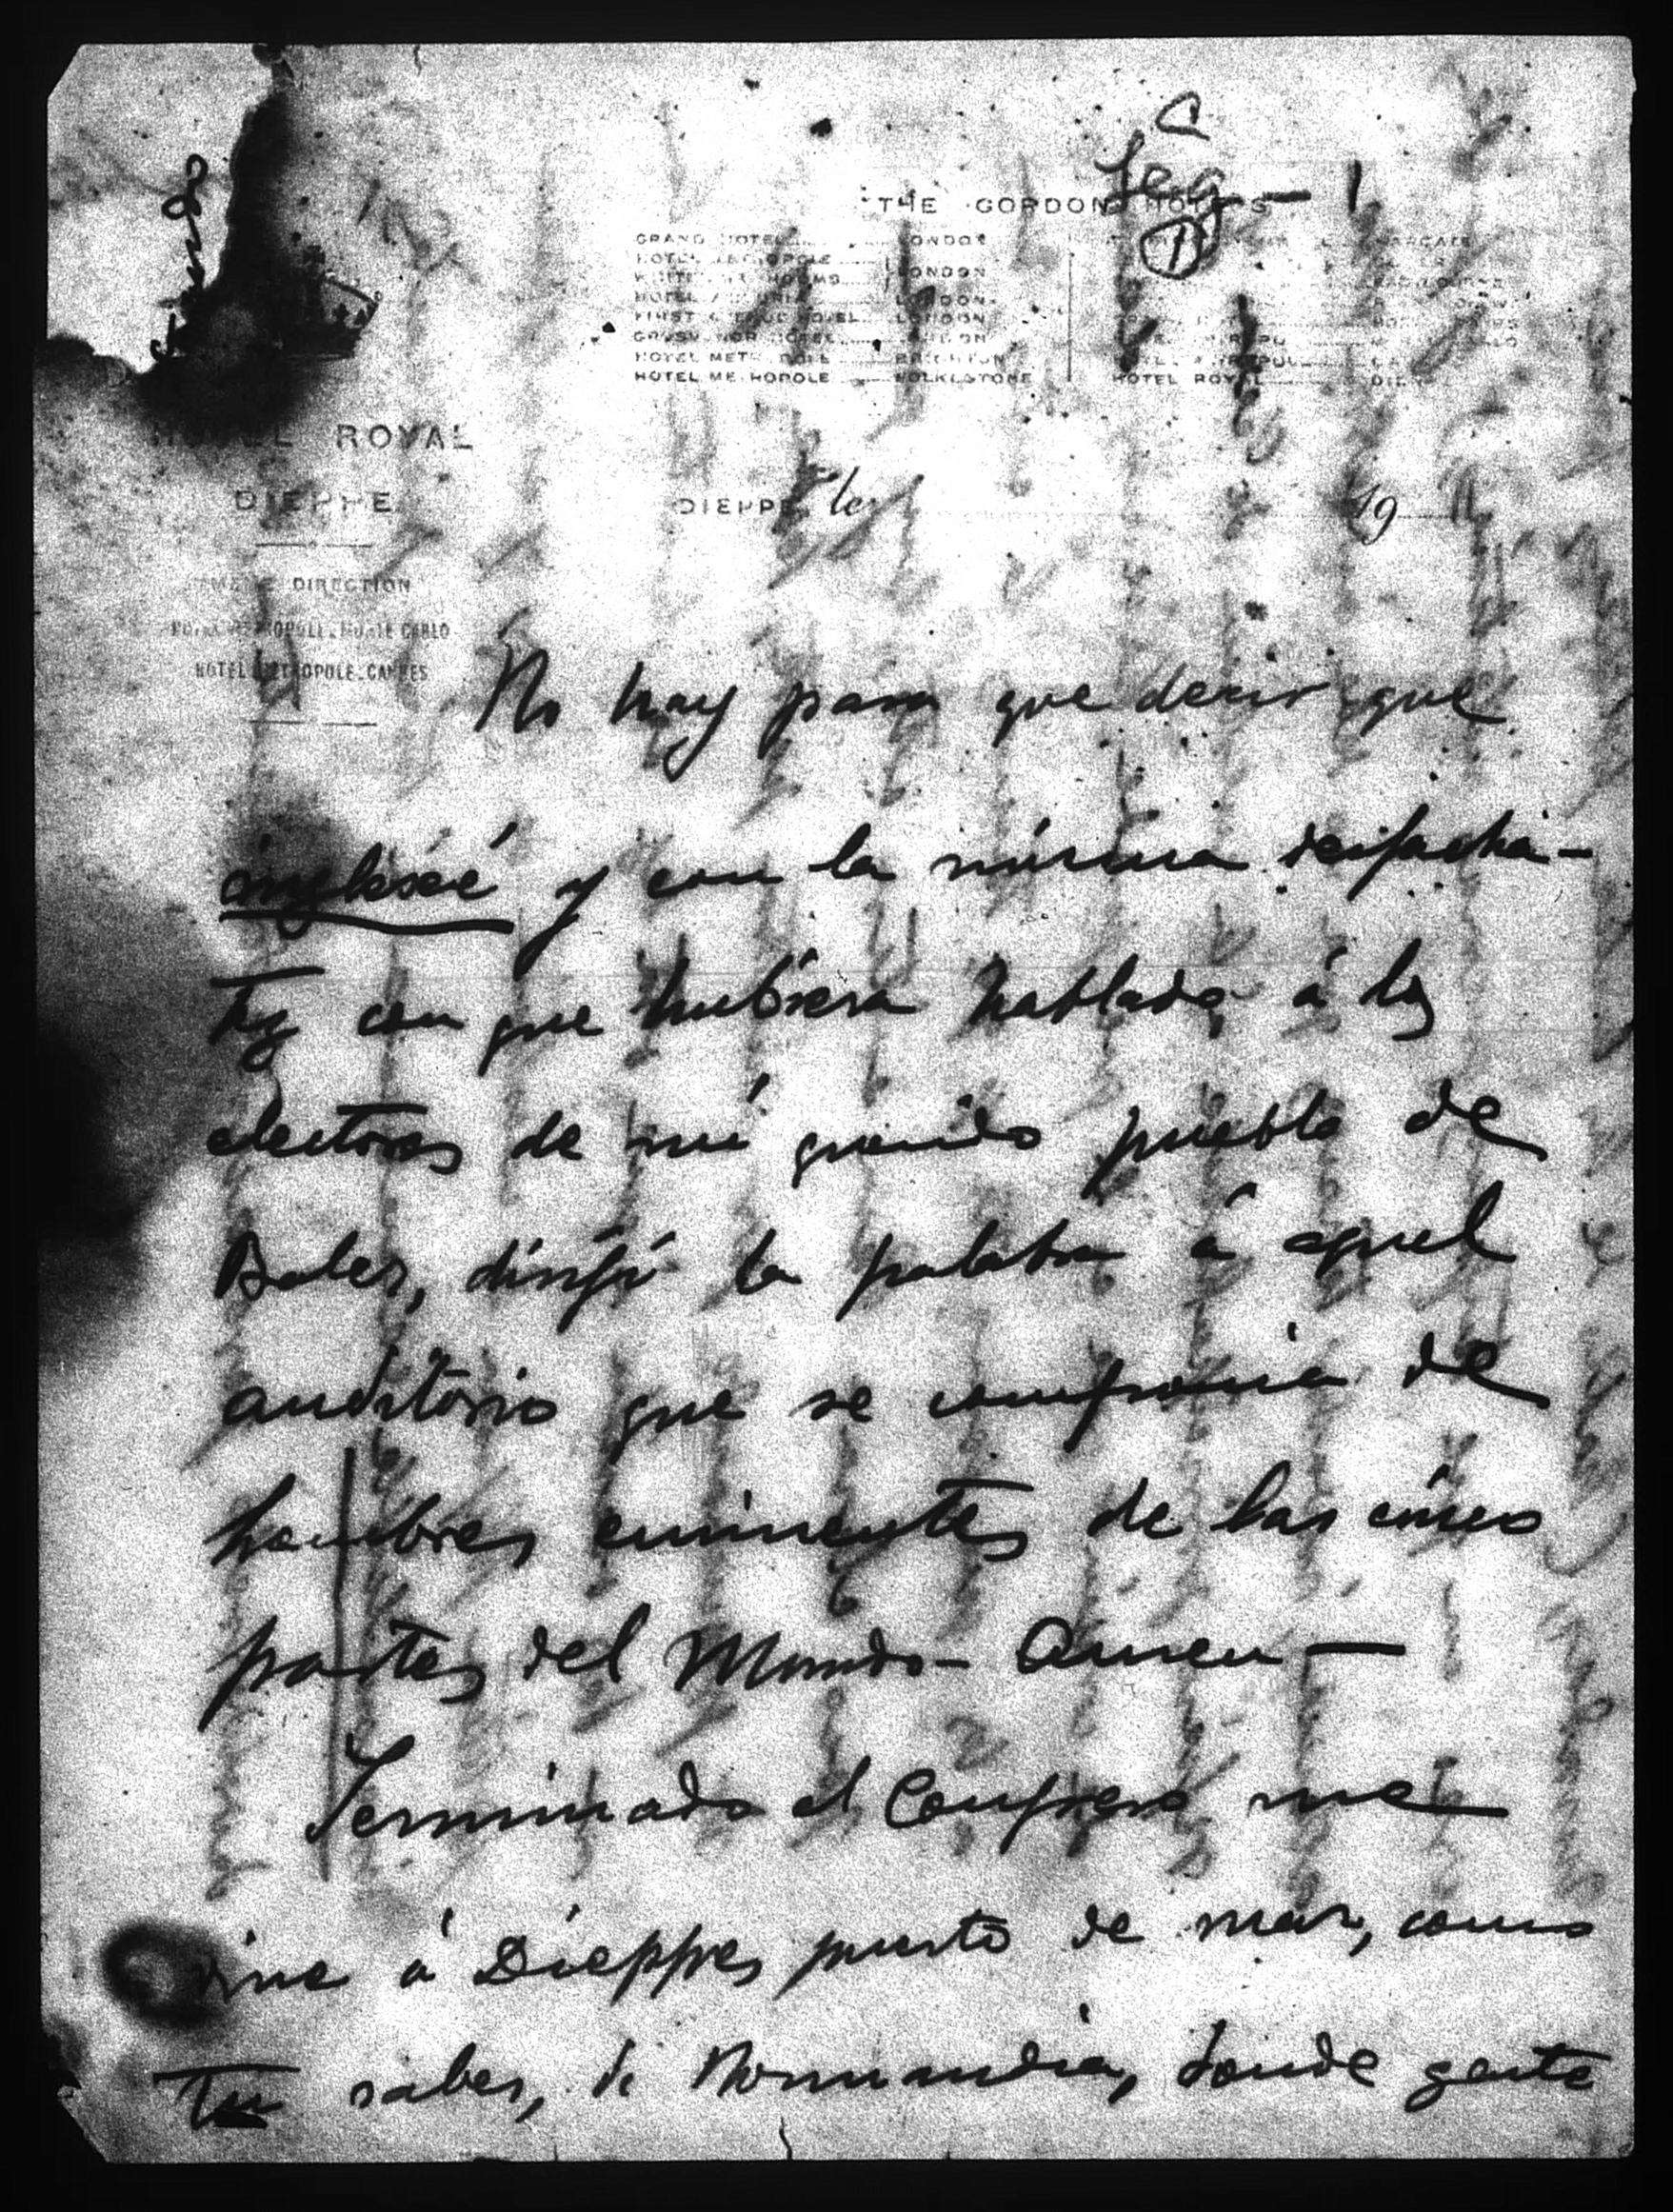 Leg - 1
THE GORDON HOTELS
GRAND HOTEL LONDON
HOTEL METROPOLE LONDON
LONDON
FIRST AVENUE HOTEL LONDON
GROSVENOR HOTEL LONDON
HOTEL METROPOLE BRIGHTON
HOTEL METROPOLE FOLKESTONE
HOTEL ROYAL DIEPPE
HOTEL ROYAL
DIEPPE
DIEPPE, le 19 11
MÊME DIRECTION
HOTEL METROPOLE. MONTE CARLO
HOTEL METROPOLE. CANNES
No hay para que decir que
inglesée y con la misma desfacha-
tez con que hubiera hablado á los
electores de mi querido pueblo de
Baler, dirijí la palabra á aquel
auditorio que se componia de
hombres eminentes de las cinco
partes del Mundo - Amen -
Terminado el Congreso me
vine á Dieppe, puerto de mar, como
Tu sabes, de Normandia, donde gente